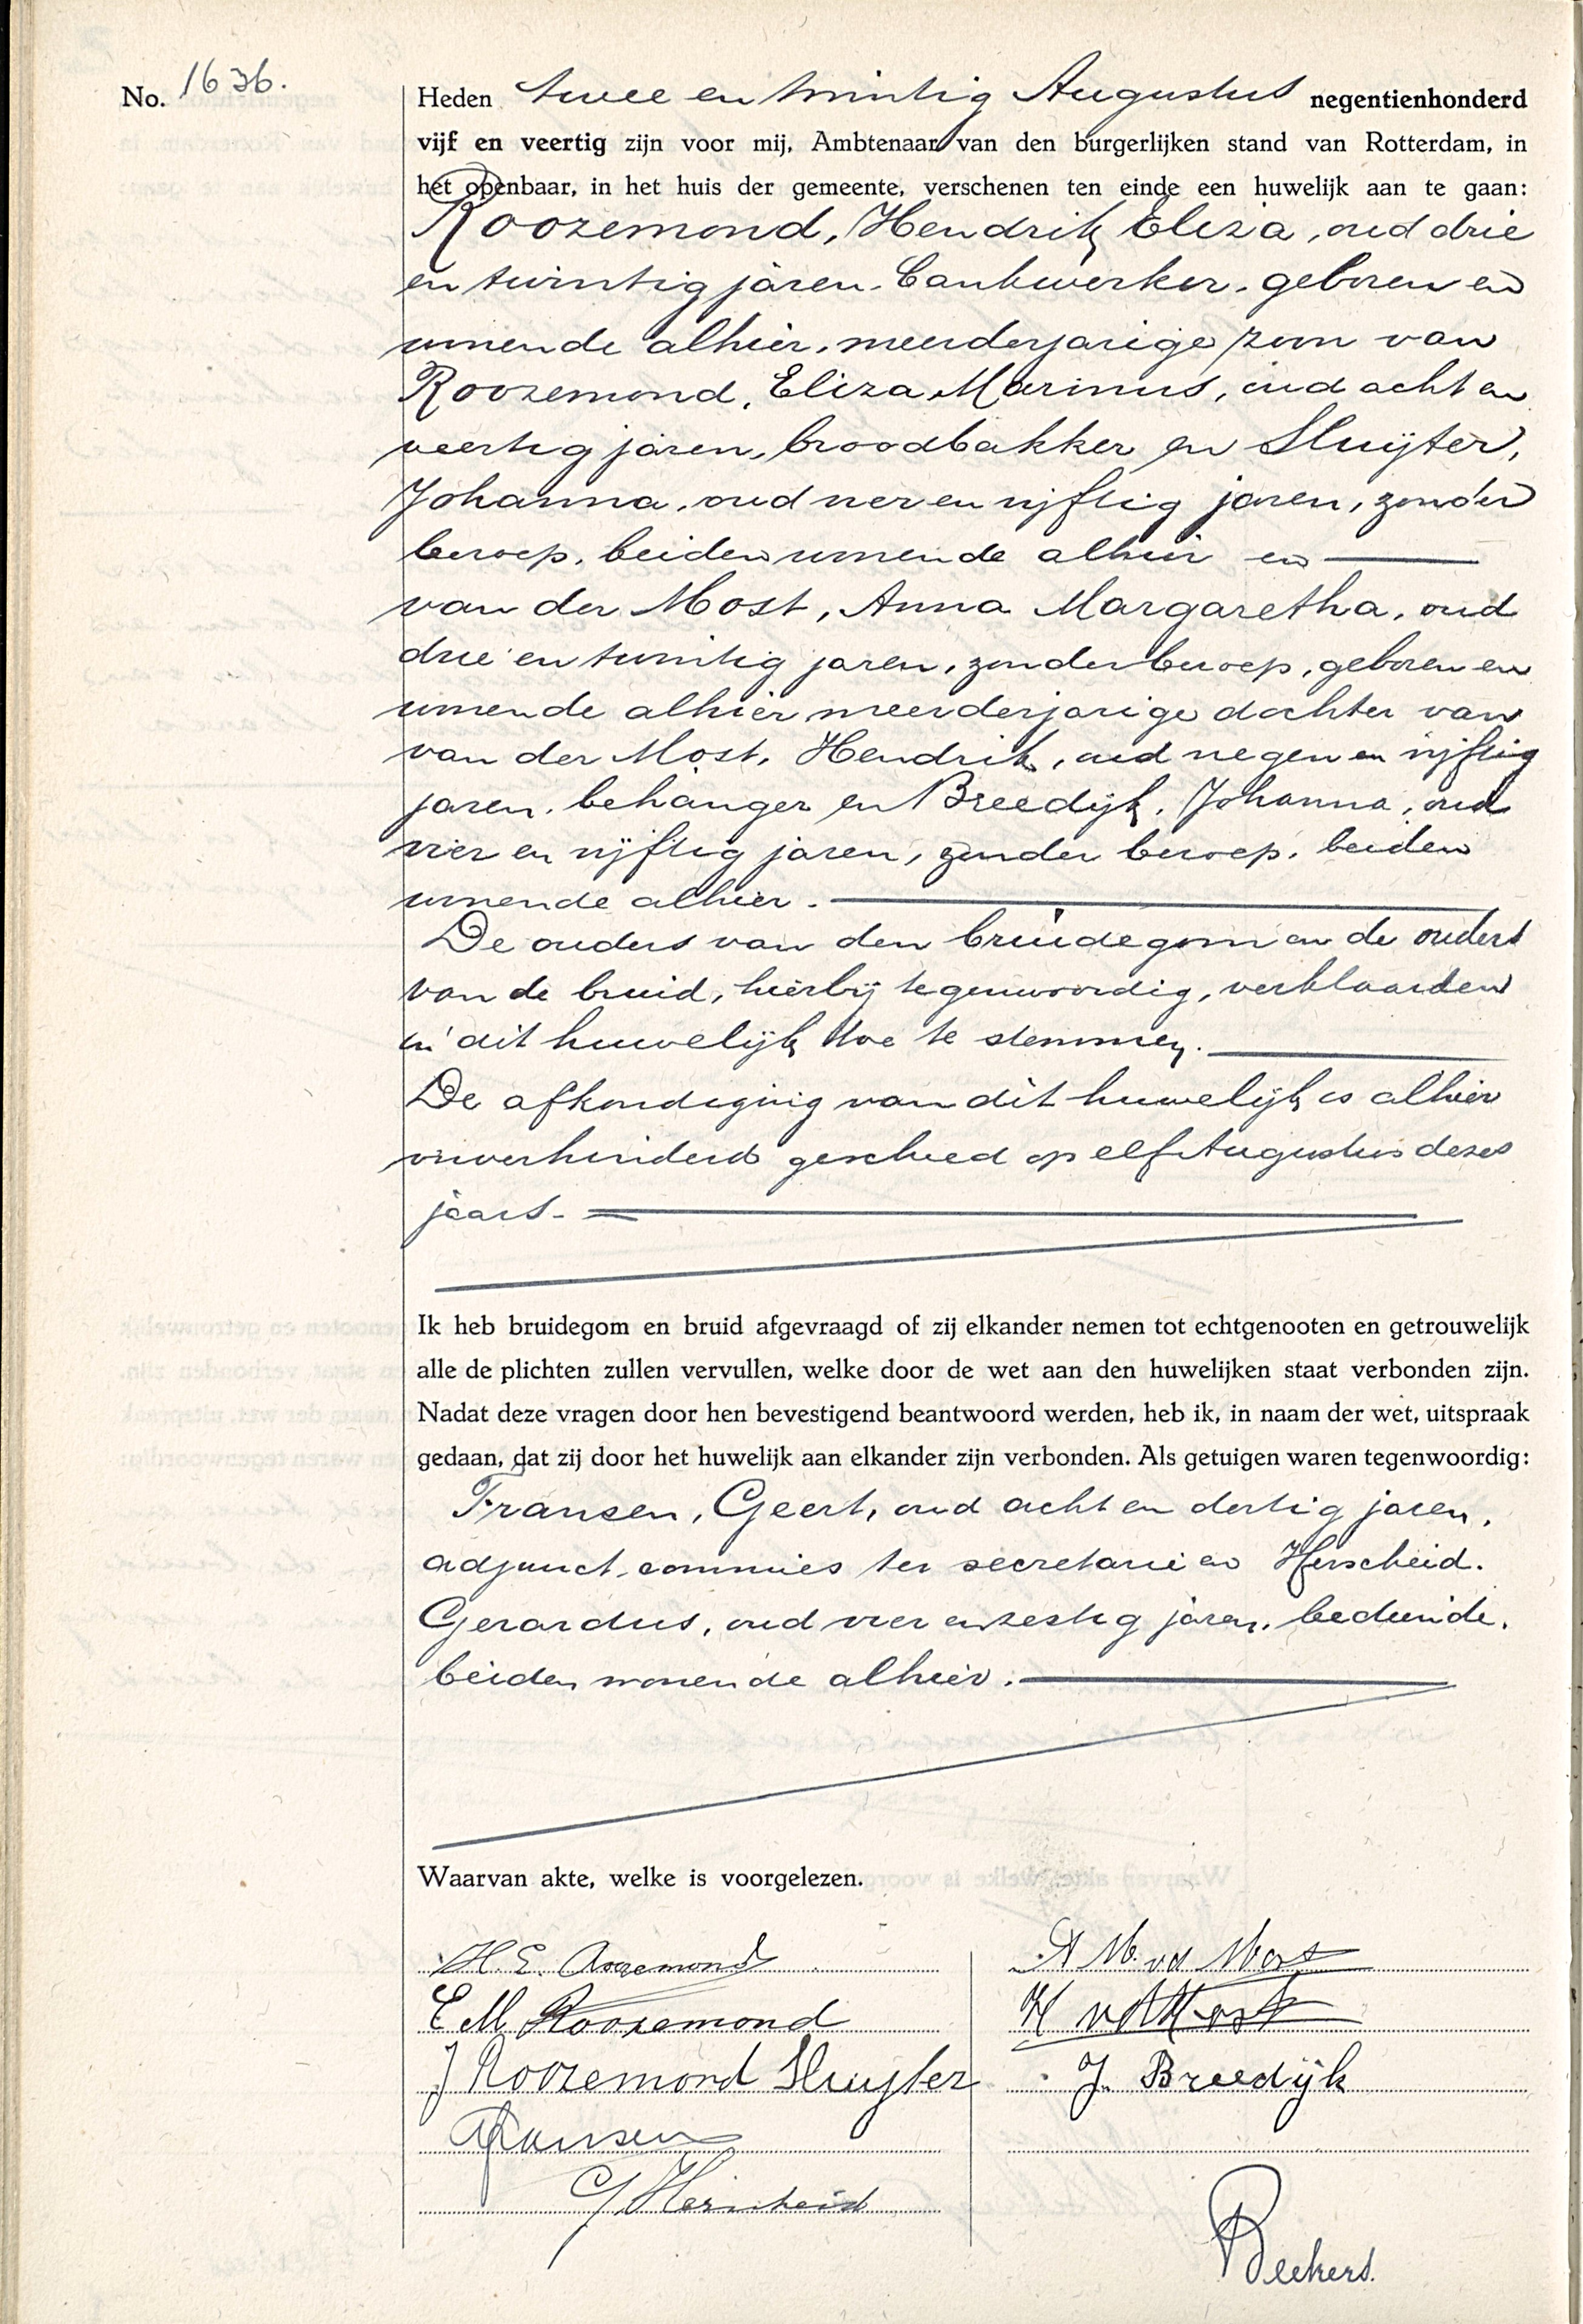 No. 1636.
Heden twee en twintig Augustus negentienhonderd
vijf en veertig zijn voor mij, Ambtenaar van den burgerlijken stand van Rotterdam, in
het openbaar, in het huis der gemeente, verschenen ten einde een huwelijk aan te gaan:
Roozemond, Hendrik Eliza, oud drie
en twintig jaren, bankwerker, geboren en
wonende alhier, meerderjarige zoon van
Roozemond, Eliza Marinus, oud acht en
veertig jaren, broodbakker en Sluijter,
Johanna, oud vier en vijftig jaren, zonder
beroep, beiden wonende alhier en
van der Most, Anna Margaretha, oud
drie en twintig jaren, zonder beroep, geboren en
wonende alhier meerderjarige dochter van
van der Most, Hendrik, oud negen en vijftig
jaren, behanger en Breedijk, Johanna, oud
vier en vijftig jaren, zonder beroep, beiden
wonende alhier.
De ouders van den bruidegom en de ouders
van de bruid, hierbij tegenwoordig, verklaarden
in dit huwelijk toe te stemmen.
De afkondiging van dit huwelijk is alhier
onverhinderd geschied op elf Augustus dezes
jaars.
Ik heb bruidegom en bruid afgevraagd of zij elkander nemen tot echtgenooten en getrouwelijk
alle de plichten zullen vervullen, welke door de wet aan den huwelijken staat verbonden zijn.
Nadat deze vragen door hen bevestigend beantwoord werden, heb ik, in naam der wet, uitspraak
gedaan, dat zij door het huwelijk aan elkander zijn verbonden. Als getuigen waren tegenwoordig:
Fransen, Geert, oud acht en dertig jaren,
adjunct commies ter secretarie en Herscheid.
Gerardus, oud vier en zestig jaren, bediende,
beiden wonende alhier.
Waarvan akte, welke is voorgelezen.
H. E. Roozemond
A M. vd Most
E M Roozemond
H vd Most
J Roozemond Sluyter
J. Breedijk
Fransen
G Herscheid